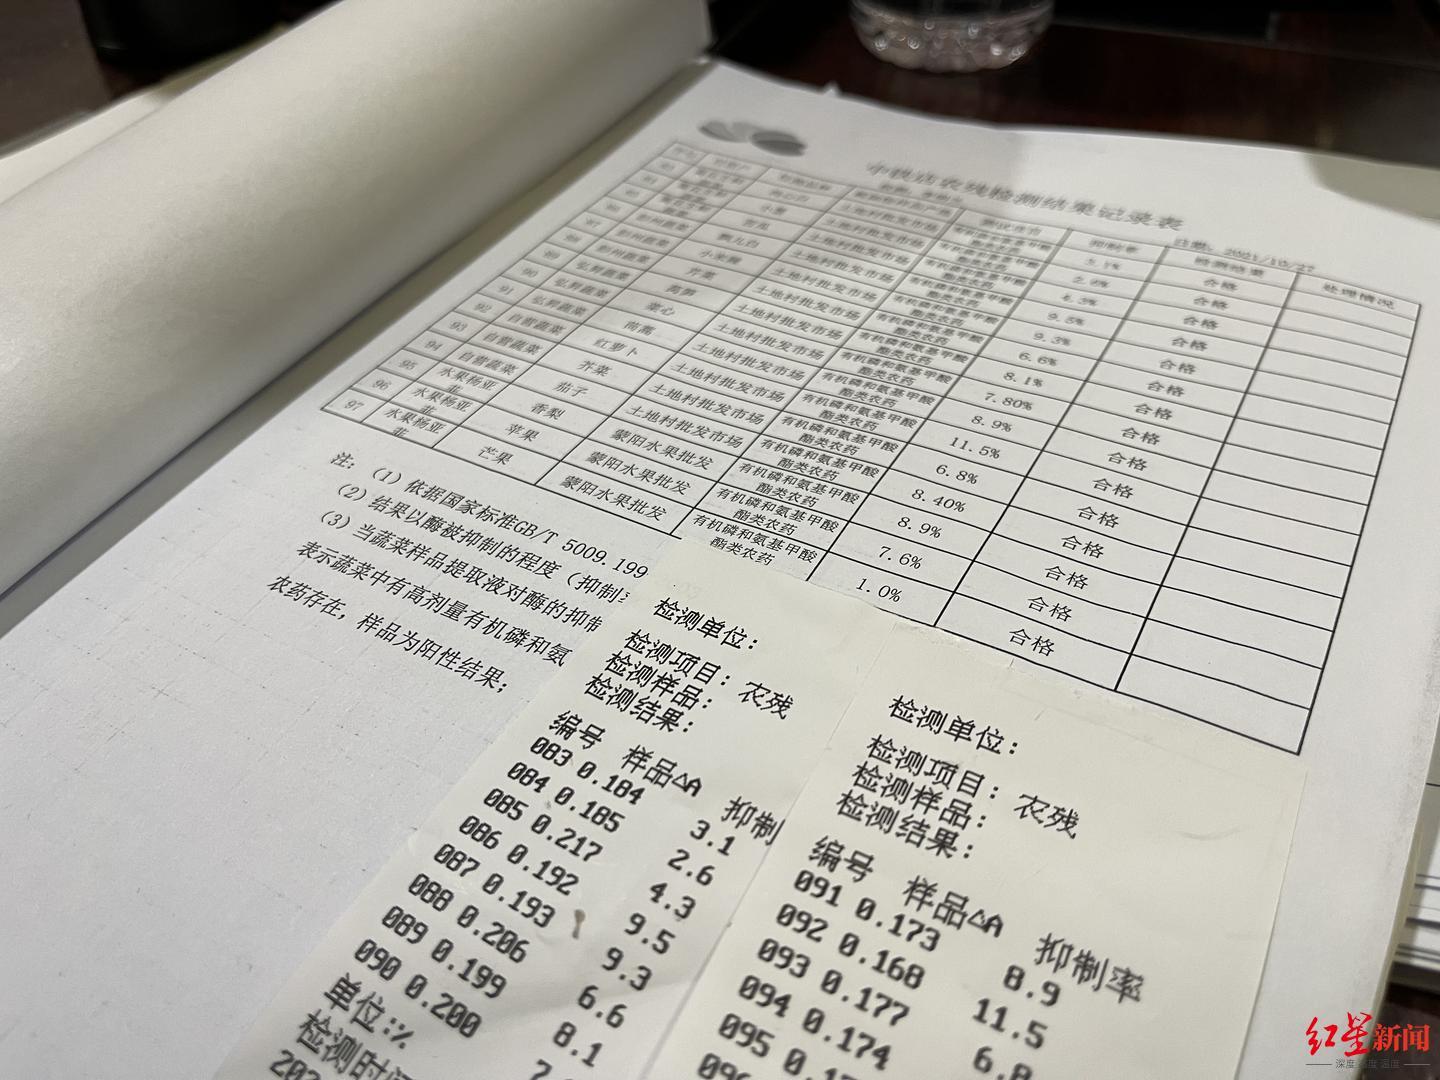 农残检测结果记录表
日期：2021/10/27
抑制率 检测结果 处理情况
3.1% 合格
2.6% 合格
4.3% 合格
9.5% 合格
87 彭州蔬菜 小米辣 土地村批发市场 有机磷和氨基甲酸酯类农药 9.3% 合格
88 彭州蔬菜 芹菜 土地村批发市场 有机磷和氨基甲酸酯类农药 6.6% 合格
89 弘昇蔬菜 莴笋 土地村批发市场 有机磷和氨基甲酸酯类农药 8.1% 合格
90 弘昇蔬菜 菜心 土地村批发市场 有机磷和氨基甲酸酯类农药 7.80% 合格
91 弘昇蔬菜 茼蒿 土地村批发市场 有机磷和氨基甲酸酯类农药 8.9% 合格
92 自营蔬菜 红萝卜 土地村批发市场 有机磷和氨基甲酸酯类农药 11.5% 合格
93 自营蔬菜 芥菜 土地村批发市场 有机磷和氨基甲酸酯类农药 6.8% 合格
94 自营蔬菜 茄子 土地村批发市场 有机磷和氨基甲酸酯类农药 8.40% 合格
95 水果杨亚韭 香梨 蒙阳水果批发 有机磷和氨基甲酸酯类农药 8.9% 合格
96 水果杨亚韭 苹果 蒙阳水果批发 有机磷和氨基甲酸酯类农药 7.6% 合格
97 水果杨亚韭 芒果 蒙阳水果批发 有机磷和氨基甲酸酯类农药 1.0% 合格
注：（1）依据国家标准GB/T 5009.199
（2）结果以酶被抑制的程度（抑制
（3）当蔬菜样品提取液对酶的抑制
表示蔬菜中有高剂量有机磷和氨
农药存在，样品为阳性结果；
检测单位：
检测项目：农残
检测样品：
检测结果：
编号 样品△A 抑制
083 0.184 3.1
084 0.185 2.6
085 0.217 4.3
086 0.192 9.5
087 0.193 9.3
088 0.206 6.6
089 0.199 8.1
090 0.200 7.
单位:%
检测时间
202
检测单位：
检测项目：农残
检测样品：
检测结果：
编号 样品△A 抑制率
091 0.173 8.9
092 0.168 11.5
093 0.177 6.8
094 0.174
095 0.1
096
红星新闻
深度 态度 温度